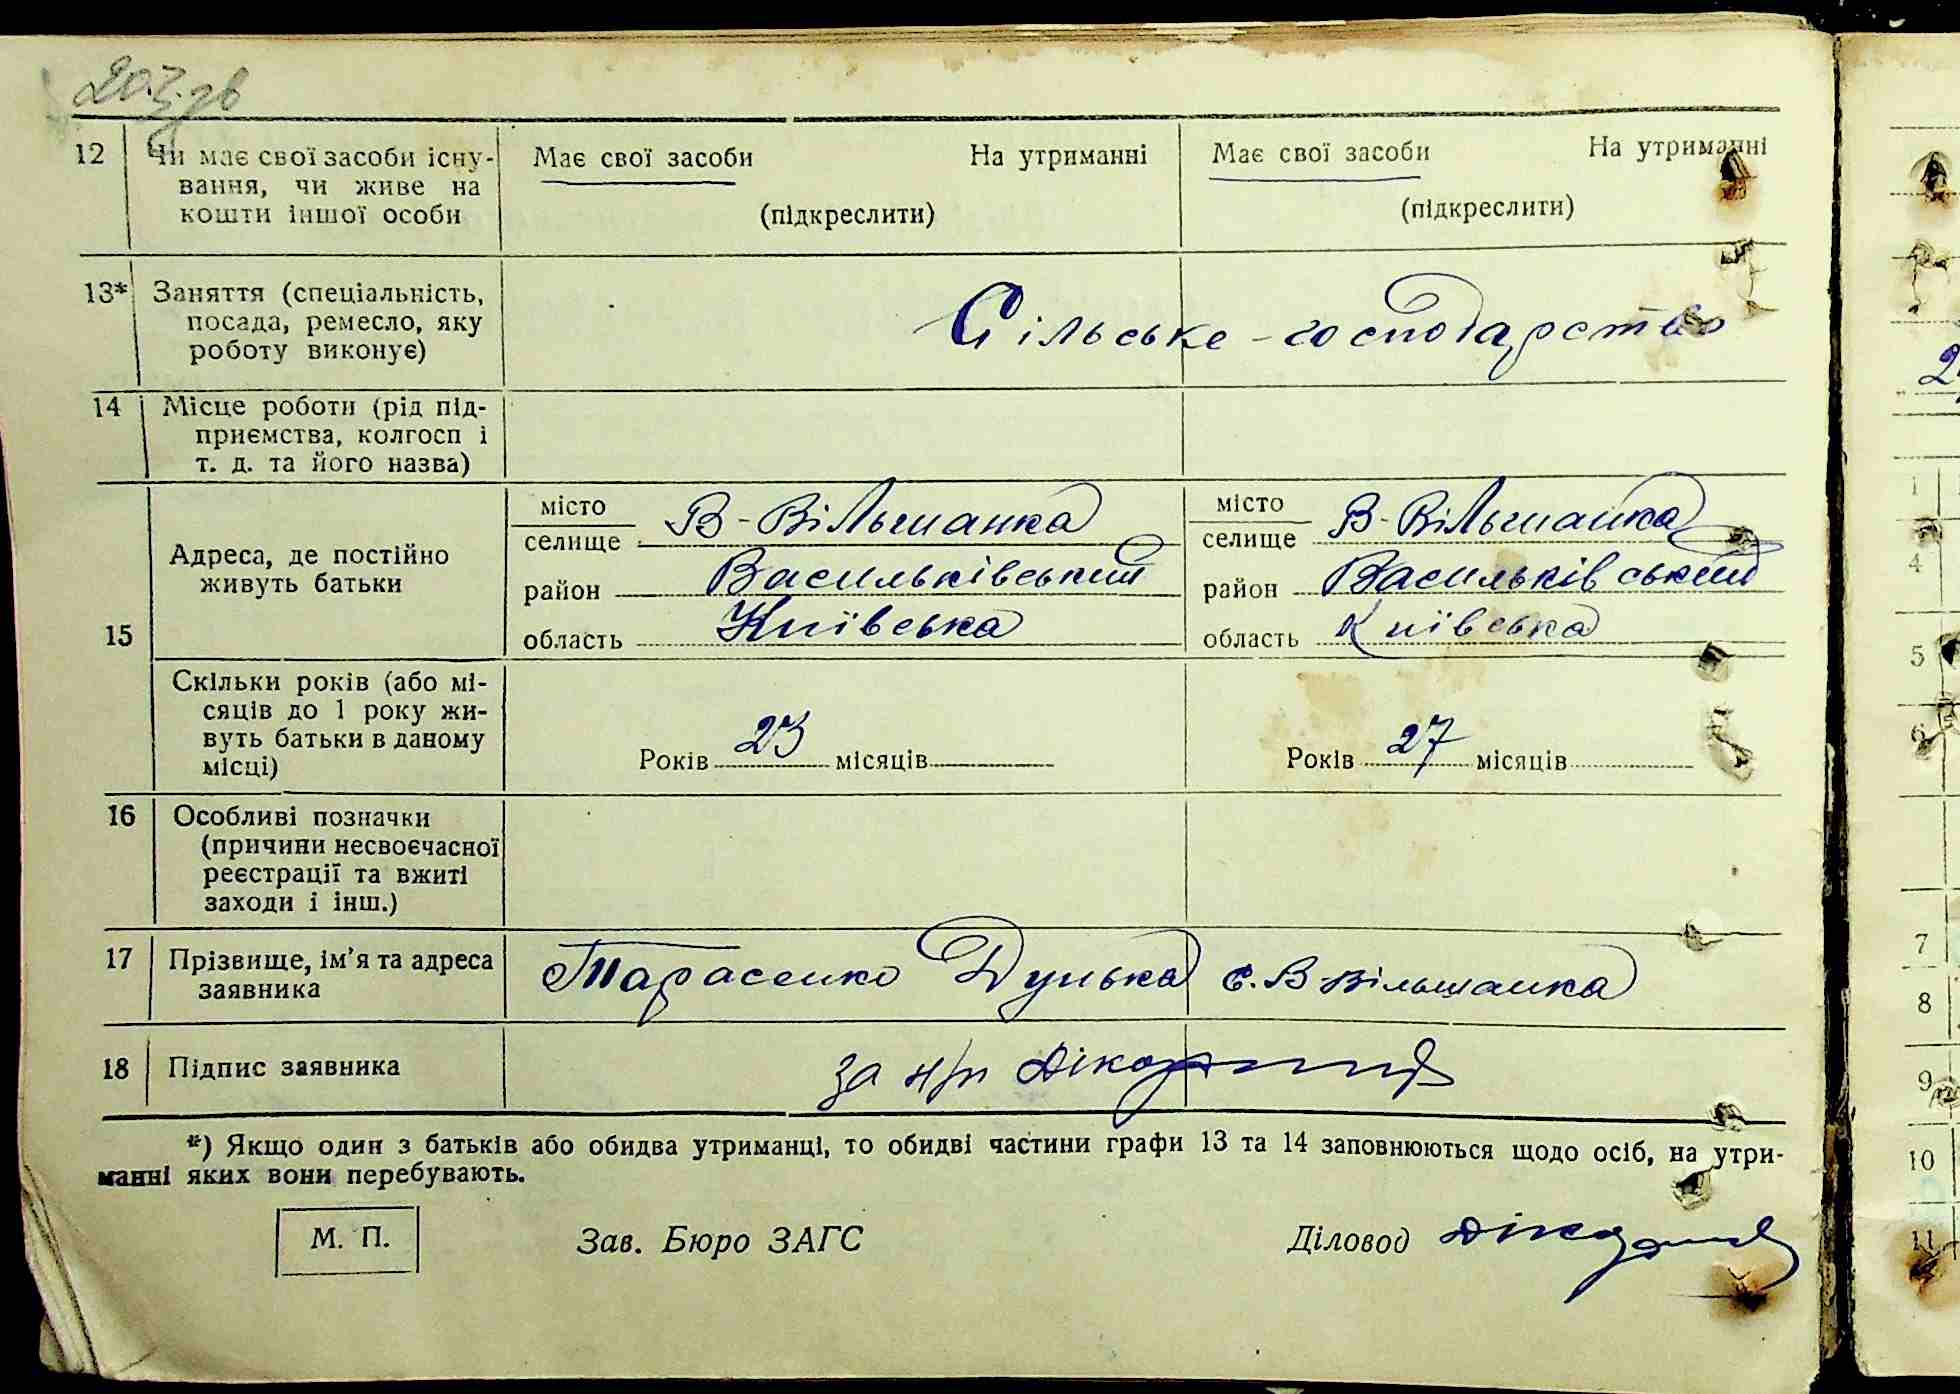 203 зв
12 Чи має свої засоби існу-
вання, чи живе на
кошти іншої особи
Має свої засоби На утриманні
(підкреслити)
Має свої засоби На утриманні
(підкреслити)
13* Заняття (спеціальність,
посада, ремесло, яку
роботу виконує)
Сільське-господарство
14 Місце роботи (рід під-
приємства, колгосп і
т. д. та його назва)
15
Адреса, де постійно
живуть батьки
місто
селище В-Вільшанка
район Васильківський
область Київська
місто
селище В-Вільшанка
район Васильківський
область Київська
Скільки років (або мі-
сяців до 1 року жи-
вуть батьки в даному
місці)
Років 23 місяців
Років 27 місяців
16 Особливі позначки
(причини несвоєчасної
реєстрації та вжиті
заходи і інш.)
17 Прізвище, ім’я та адреса
заявника
Тарасенко Дунька с. В-Вільшанка
18 Підпис заявника
за н/п
*) Якщо один з батьків або обидва утриманці, то обидві частини графи 13 та 14 заповнюються щодо осіб, на утри-
манні яких вони перебувають.
М. П.
Зав. Бюро ЗАГС
Діловод
1
4
5
6
7
8
9
10
11